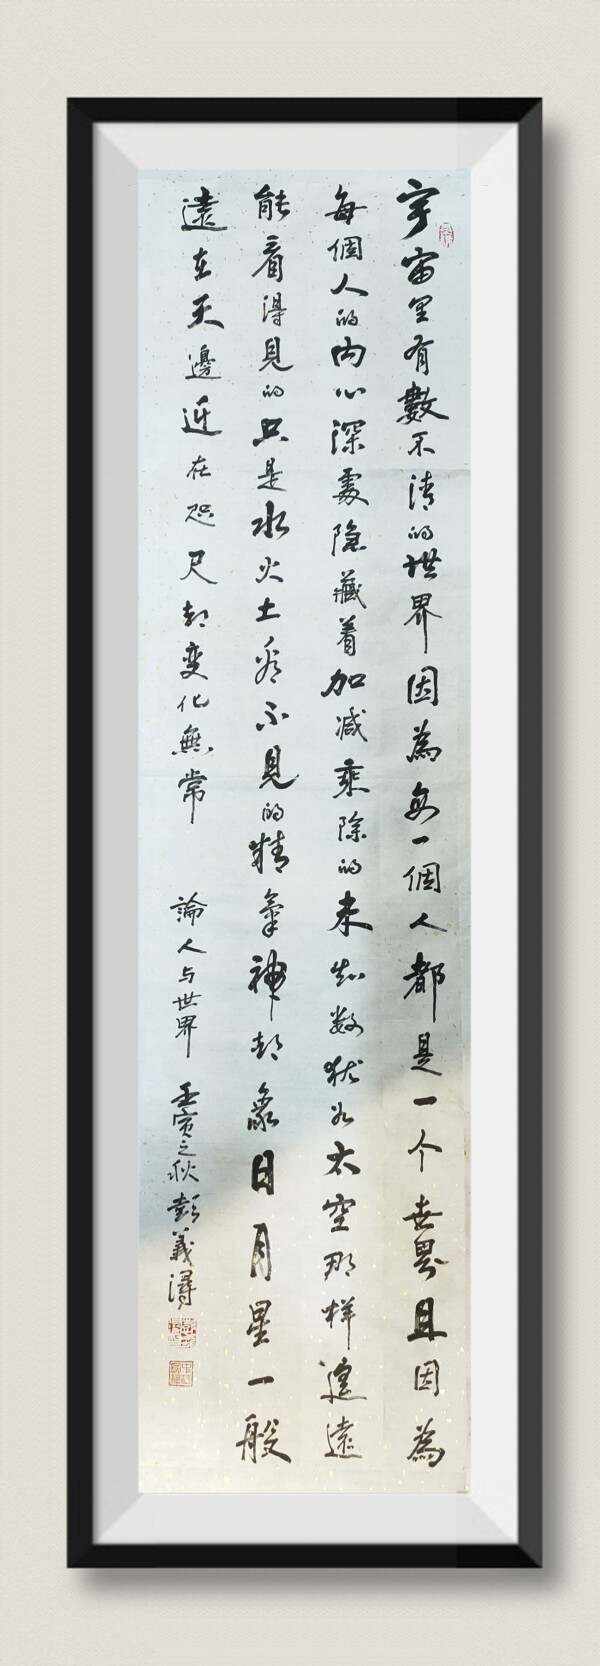 宇宙里有數不清的世界因為每一個人都是一个世界且因為
每個人的内心深處隐藏着加减乘除的未知数犹如太空那样遥遠
能看得見的只是水火土看不見的精氣神却象日月星一般
遠在天邊近在咫尺却变化無常
論人与世界
壬寅之秋彭義潯